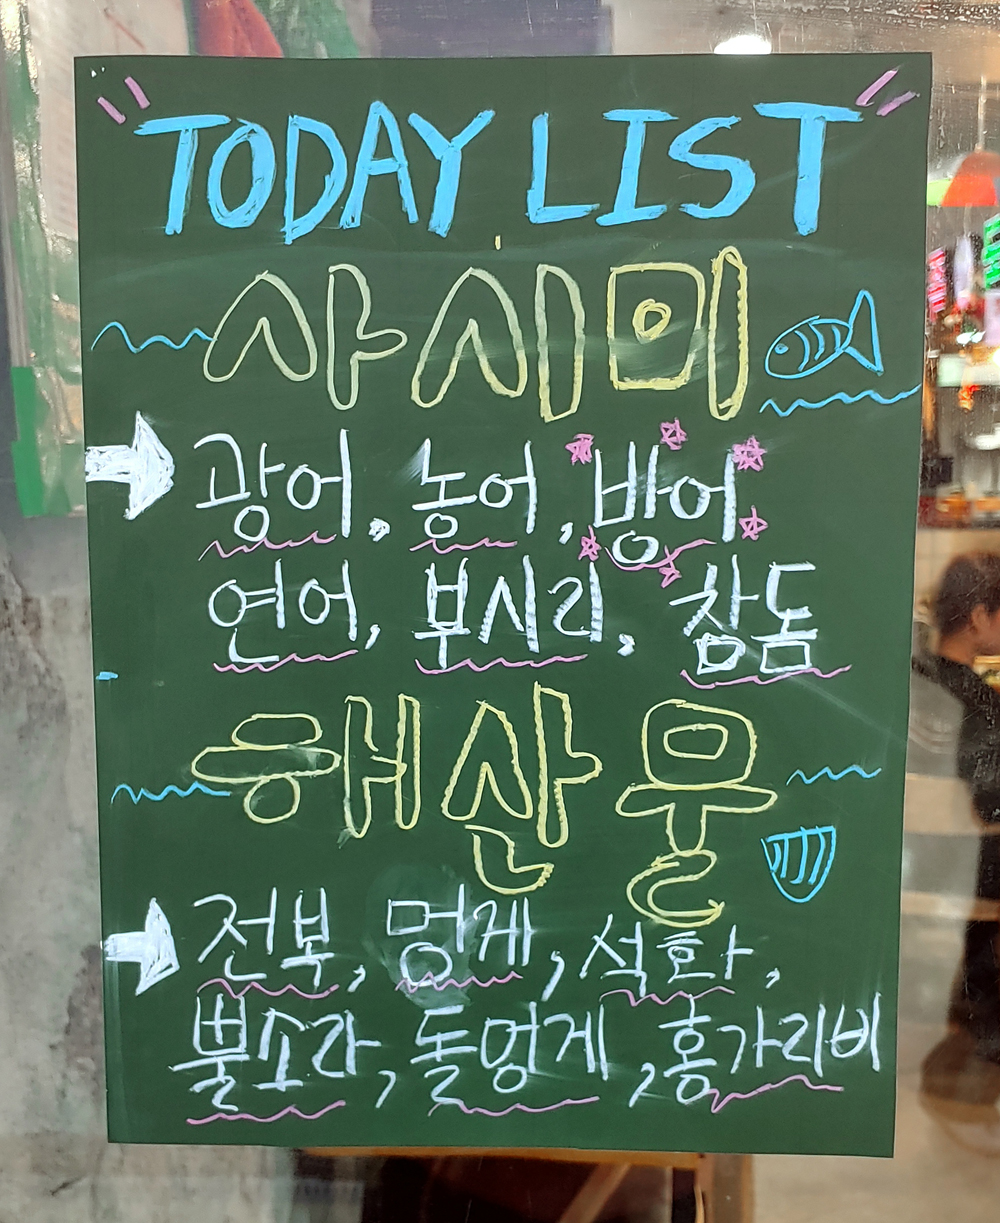 TODAY LIST
사시미
광어, 농어, 방어
연어, 부시리, 참돔
해산물
전복, 멍게, 석화,
뿔소라, 돌멍게, 홍가리비